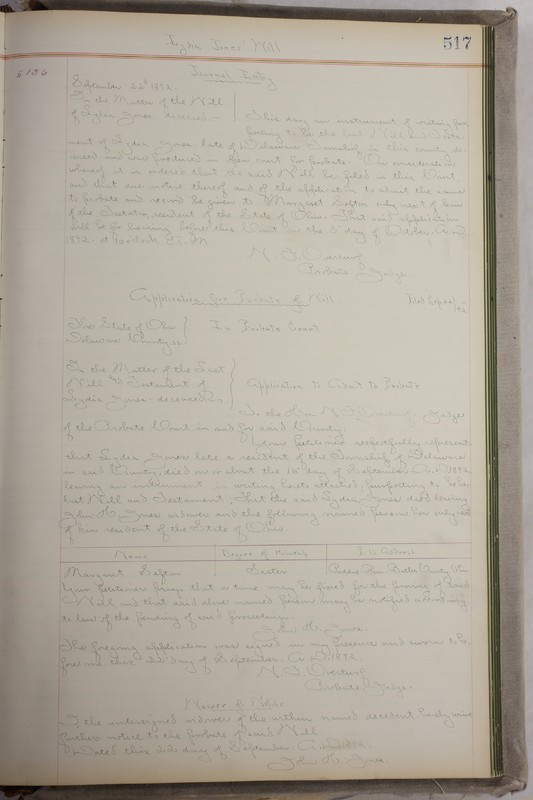 Lydia Jones' Will
517
5136
Journal Entry
September 22d 1892.
In the Matter of the Will
of Lydia Jones deceased
This day an instrument of writing pur
porting to be the last Will and Testa
ment of Lydia Jones late of Delaware Township in this county de
ceased and now produced in open court for probate. On consideration
whereof it is ordered that the said Will be filed in this Court
and that due notice thereof and of the application to admit the same
to probate and record be given to Margaret Sefton only next of kin
of the Testator, resident of the State of Ohio. That said application
will be for hearing before this Court on the day of October A.D.
1892. at 9 o'clock A.M.
N. F. Overturf
Probate Judge
Application for Probate of Will
Filed Sep 22/92
The State of Ohio
Delaware County ss
In Probate Court
In the Matter of the Last
Will & Testament of
Lydia Jones deceased
Application to Admit to Probate
To the Hon N. F. Overturf, Judge
of the Probate Court in and for said County:
Your Petitioner respectfully represents
that Lydia Jones late a resident of the Township of Delaware
in said County, died on or about the day of September A.D. 1892,
leaving an instrument in writing hereto attached, purporting to be her
last Will and Testament; That the said Lydia Jones died leaving
John H. Jones widower and the following named persons her only next
of kin resident of the State of Ohio.
Name
Degree of Kinship
P.O. Address
Margaret Sefton
Sister
Butler County Ohio
Your Petitioner prays that a time may be fixed for the proving of said
Will and that said above named person may be notified according
to law of the pending of said proceedings.
John H. Jones
The foregoing application was signed in my presence and sworn to be
fore me this 22 day of September. A.D. 1892.
N. F. Overturf
Probate Judge.
Waiver of Notice
I the undersigned widower of the within named decedent hereby waive
further notice to the probate of said Will
Dated this 22 day of September A.D. 1892.
John H. Jones.